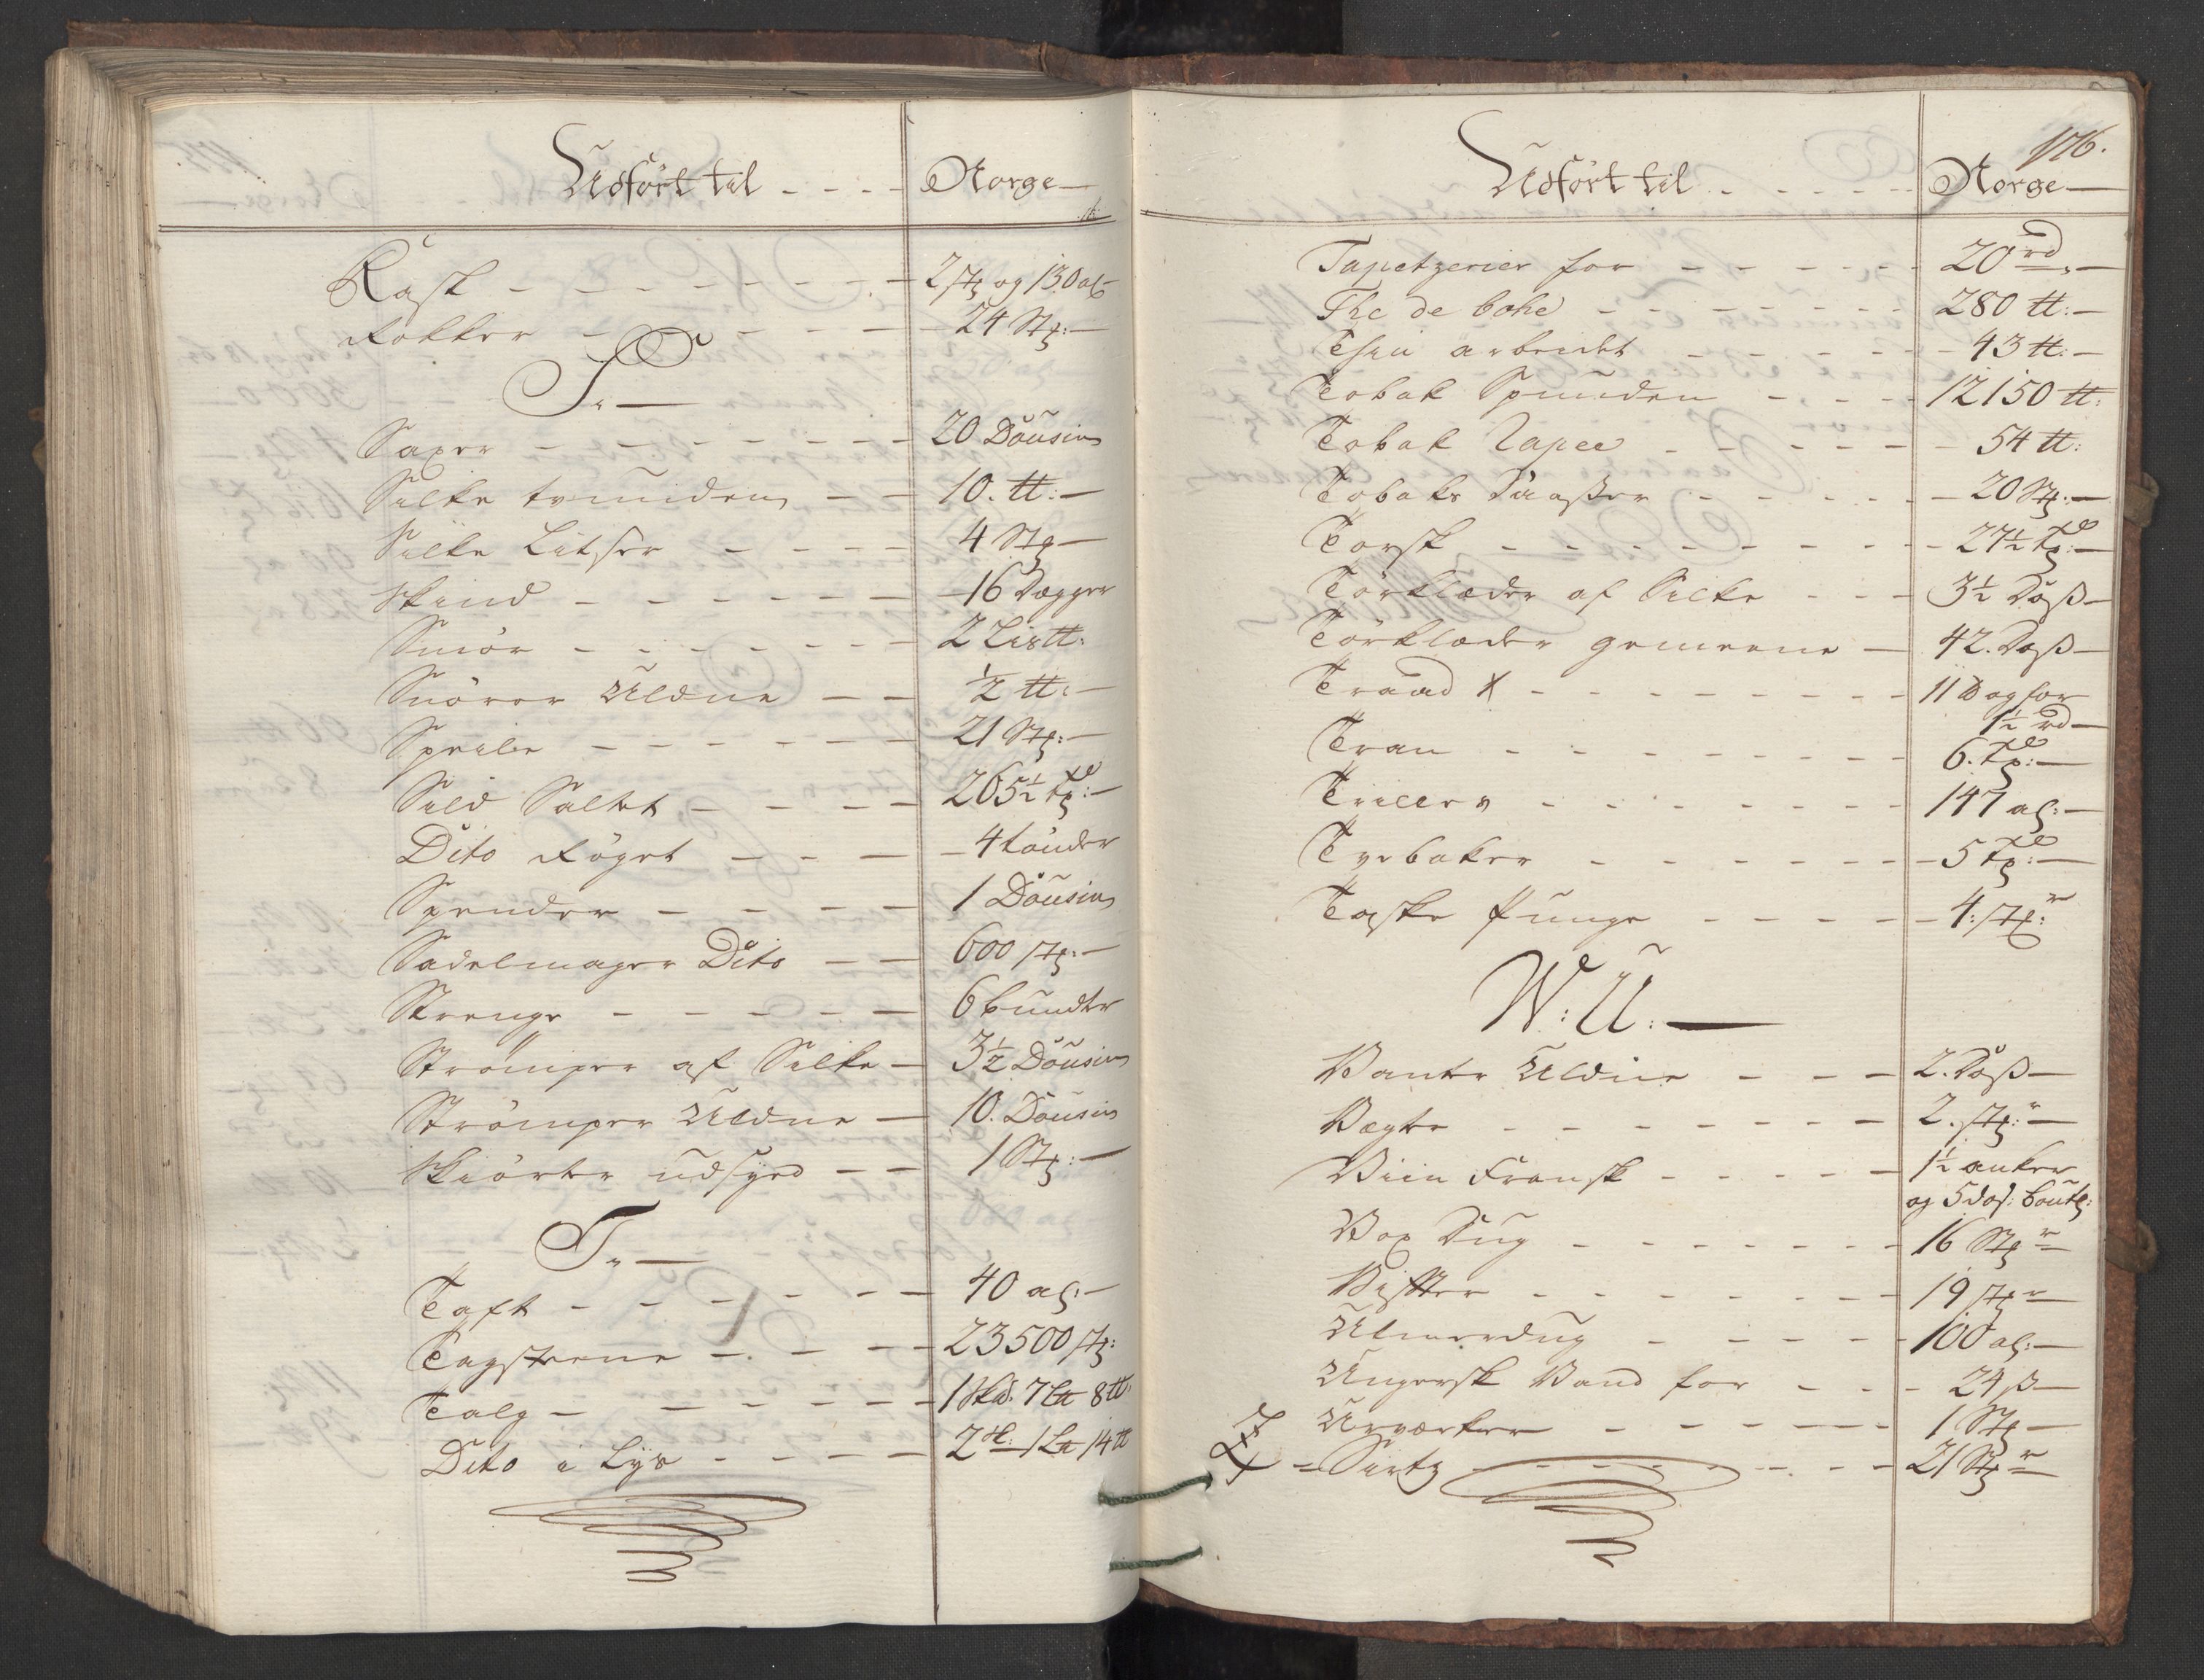 Udført til - - - - Norge
Rask - - - - - - - - 2 stk og 130 al
Rokker - - - - - - 24 Stk:
S.
Saxer - - - - - - - - 20 Dousin
Silke tvunden - - 10. tt:
Silke Litser - - - - 4 Stk
Skind - - - - - - - 16 Degger
Smör - - - - - - - 2 Listt:
Snörer Uldne - - ½ tt:
Speile - - - - - - - 21 Stk:
Sild Saltet - - - - 265½ tp:
Dito Röget - - - - 4 tönder
Spender - - - - - 1 Dousin
Sadelmager Dito - - 600 stk:
Strenge - - - - - - 6 bundter
Strömper af Silke - 3½ Dousin
Strömper Uldne - 10. Dousin
Skiörter udsyed - - 1 Stk:
T.
Taft - - - - - - - 40 al:
Tagsteene - - - - - 23500 stk:
Talg - - - - - - 1 Skd. 7 Ltt 8 tt
Dito i Lys - - - - - 1 Ltt 14 tt
176.
Udført til - - - - - Norge
Tapetzerier for - - - - - - 20 rd
The de bohe - - - - - - - 280 tt:
Thin arbeidet - - - - - - 43 tt:
Tobak Spunden - - - - 12150 tt:
Tobak Rapee - - - - - 54 tt:
Tobaks Daaßer - - - - - 20 Stk:
Torsk - - - - - - - - - 27½ tp:
Törklæder af Silke - - - 3½ Doß
Törklæder gemeene - 42. Doß
Traad X - - - - - - - - 11 tt og for
1½ rd
Tran - - - - - - - - 6. tp:
Trillery - - - - - - - - 147 al:
Tvebaker - - - - - - 5 tp:
Taske Punge - - - - - 4: stk:
W: U:
Vanter Uldne - - - 2. Doß
Vægte - - - - - - - 2. stk:
Viin Fransk - - - - - 1½ anker
og 5 dos: bout:
Vox Dug - - - - - - - 16 Stk
Vifter - - - - - - - 19 stk
Ulmerdug - - - - - 100 al:
Ungersk Vand for - - - 24 ß
Urværker - - - - - 1 Stk
Sirtz - - - - - - - - 21 Stk